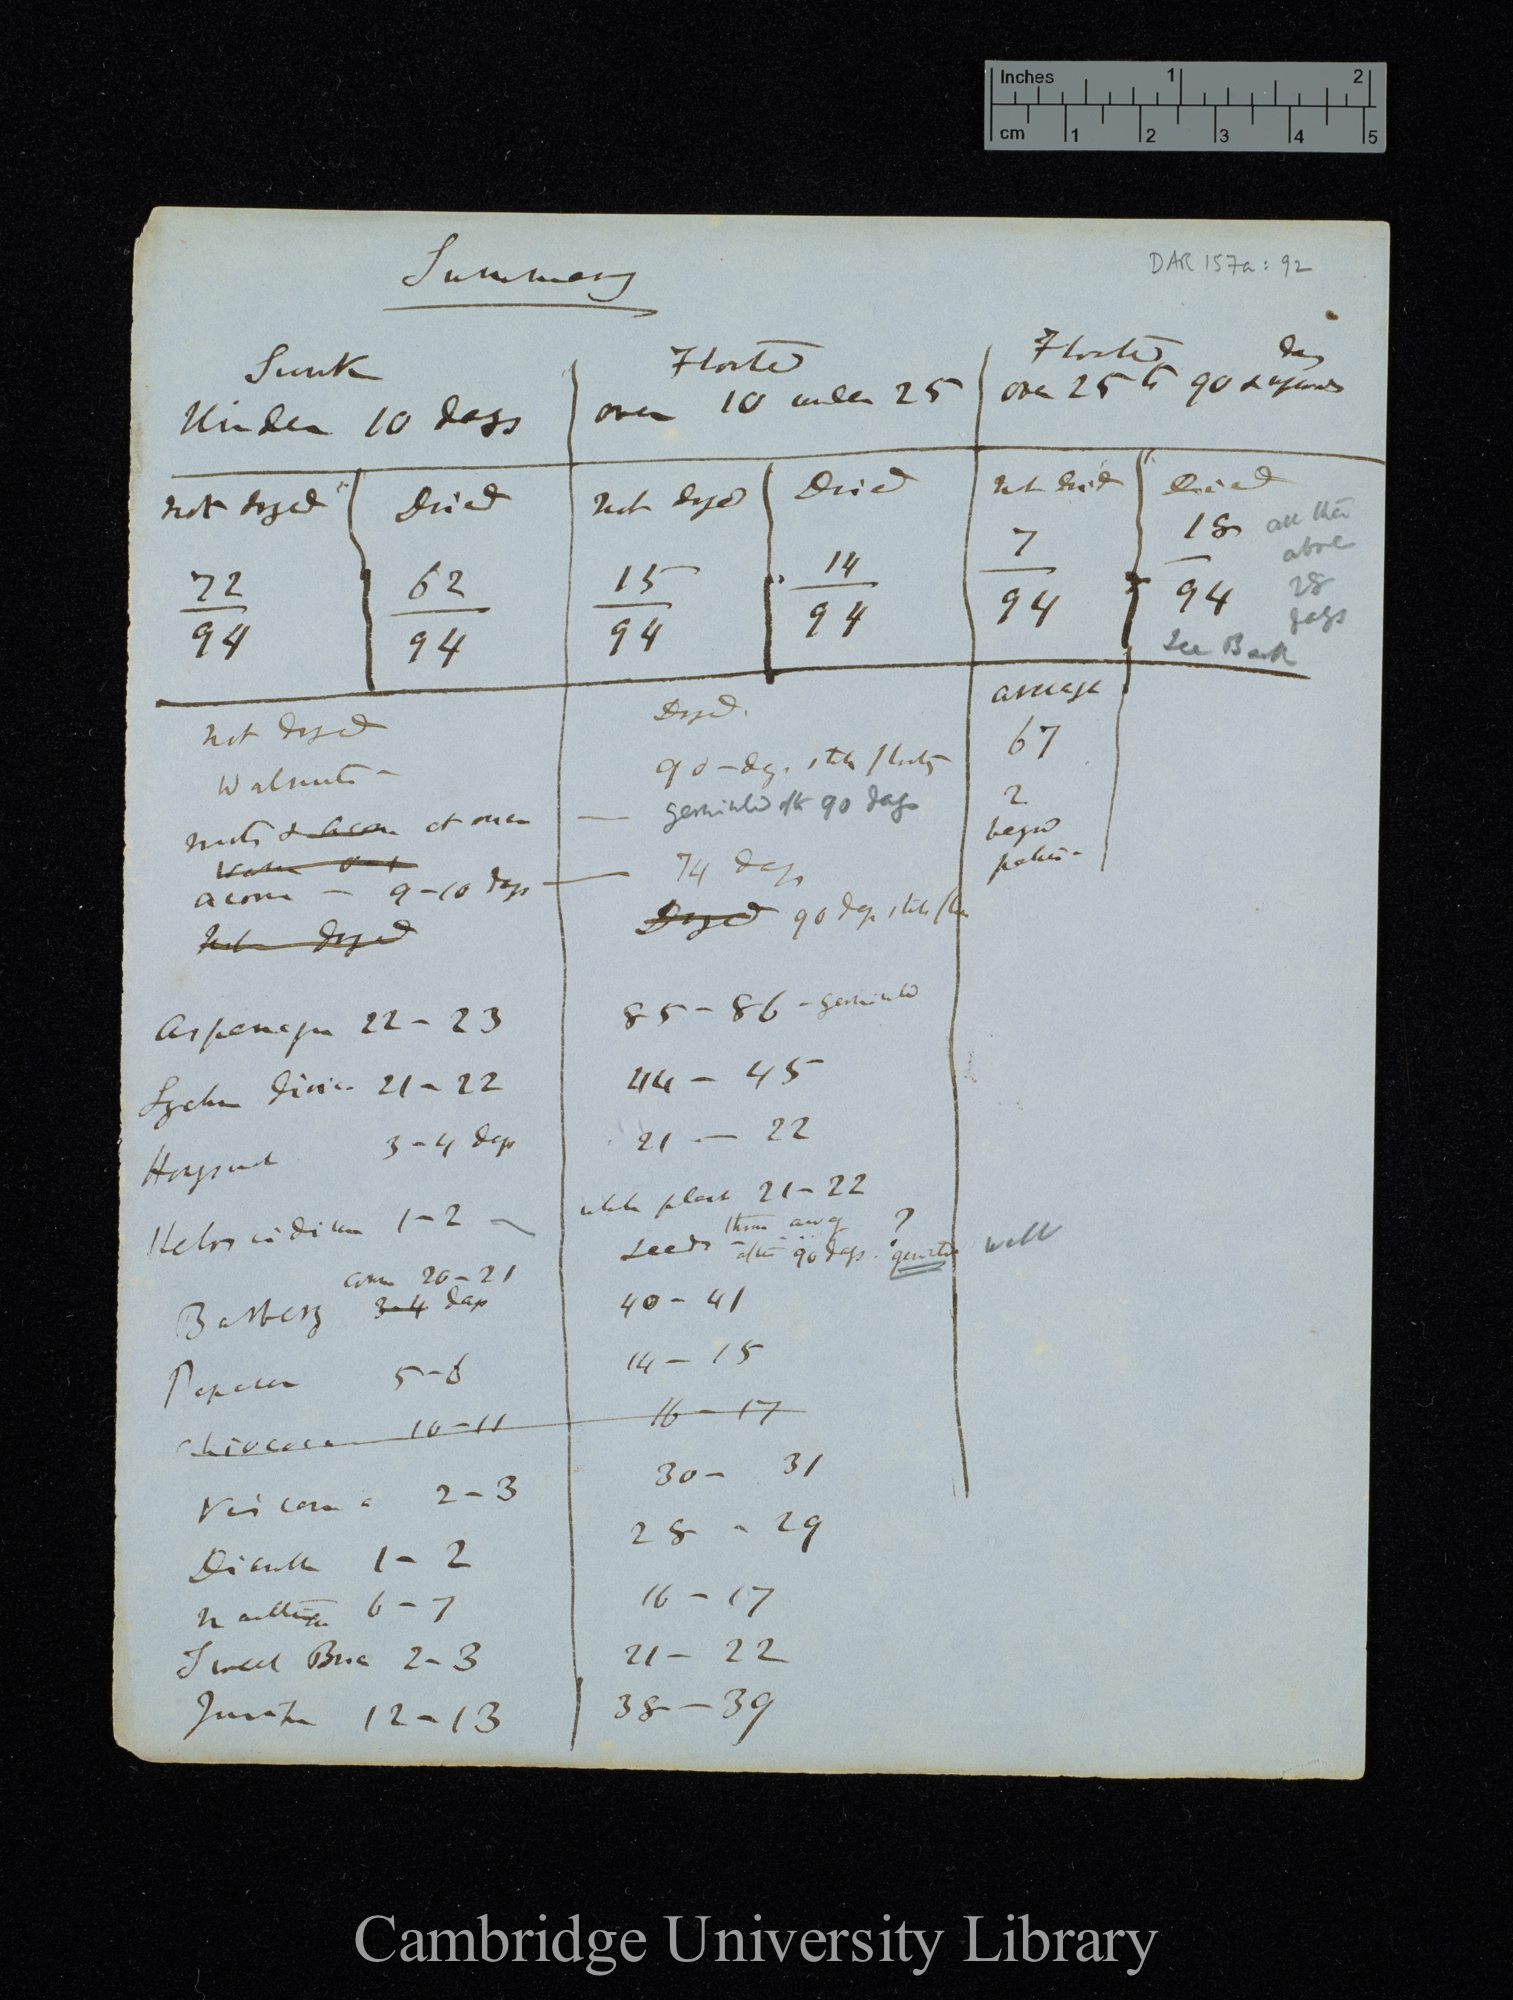 Inches 1 2
cm 1 2 3 4 5
DAR 157a: 92
Summary
Sunk
Under 10 days
Floated
over 10 under 25
Floated day
over 25 to 90 & upwards
Not dryed
Dried
Not dryed
Dried
Not dried
Dried
72
94
62
94
15
94
14
94
7
94
18
94
all these
above
28
days
See Back
Not dryed
Dryed.
average
Walnuts –
90 – dys. still floating
67
nuts & acorn at once — germinated after 90 days
2
began
acorn — 9–10 days — 74 days
Not dryed
Dryed 90 days still
Asparagus 22–23
85–86 – germinated
44 – 45
21–22
3–4 days
21 — 22
Helosciadium 1–2 –
whole plant 21–22
Seeds – thrown away ?
after 90 days. germinated well
Barberry 20–21
3–4 days
40–41
Papaver 5–6
14–15
Chiococca 10–11
16–17
2–3
30– 31
Dianth 1–2
28 – 29
6–7
16–17
Sweet Briar 2–3
21– 22
12–13
38–39
Cambridge University Library